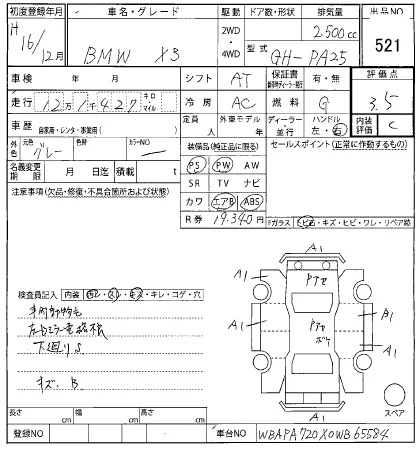 初度登録年月 車名・グレード 駆動 ドア数・形状 排気量 出品NO
H 16/12月 BMW X3 2WD・4WD 2500cc 521
型式 GH-PA25
車検 年 月 シフト AT 保証書 有・無 評価点
走行 12万1千427 キロ・マイル 冷房 AC 燃料 G 3.5
車歴 自家用・レンタ・事業用( ) 定員 人 外車モデル 年 ディーラー・並行 ハンドル 左・右 内装評価 C
外色 元色 グレー 色替 カラーNO
装備品(純正品に限る) セールスポイント(正常に作動するもの)
名義変更期限 月 日迄 積載 t
PS PW AW
SR TV ナビ
注意事項(欠品・修復・不具合箇所および状態)
カワ エアB ABS
R券 19,340円
Fガラス トビ石・キズ・ヒビ・ワレ・リペア跡
A1
A1 ドアセ A1
A1 ドアセ B1
ボケ A1
A1
スペア
検査員記入 内装 キレ・コゲ・穴
左右ミラー電格根
下廻りS
キズ、B
長さ cm 幅 cm 高さ cm
登録NO 車台NO WBAPA720X0WB65584